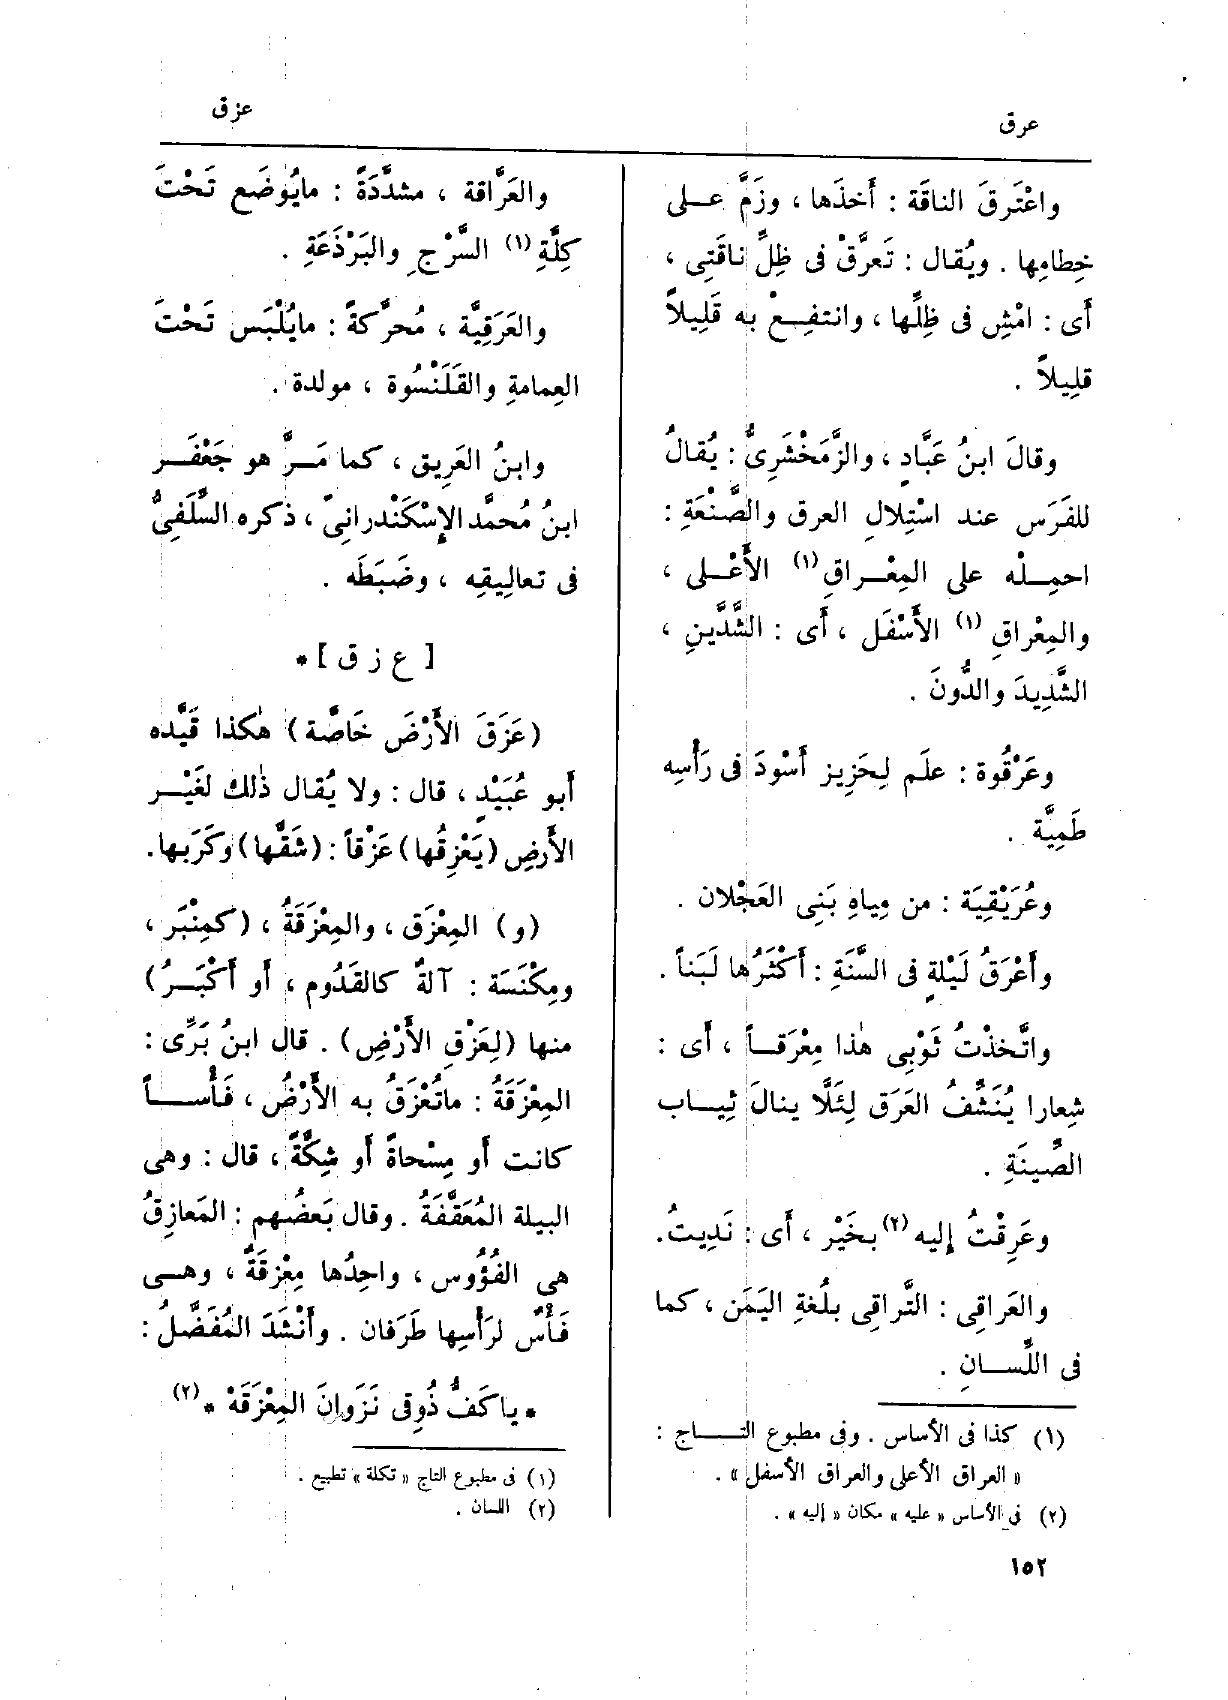 عرق
عزق
واعْتَرقَ الناقَة : أَخذَها ، وزَمَّ عــلى
خِطامِها . ويُقال : تَعرَّقْ فى ظِلِّ ناقَتِى ،
أَى : امْشِ فى ظِلِّها ، وانتفِـعْ به قَلِيلاً
قلِيلاً .
وقالَ ابنُ عَبَّادٍ ، والزَّمَخْشَرِىُّ : يُقالُ
للفَرَس عند اسْتِلالِ العرق والصَّنْعَةِ :
احمِــلْه على المِعْــراقِ (١) الأَعْــلى ،
والمِعْراقِ (١) الأَسْفَل ، أَى : الشَّدَّينِ ،
الشَّدِيدَ والدُّونَ .
وعَرْقُوة : علَم لِحَزِيز أَسْودَ فى رَأْسِه
طَمِيَّة .
وعُرَيْقِيَة : من مِياهِ بَنِى العَجْلان .
وأَعْرَقُ لَيْلةٍ فى السَّنَةِ : أَكْثَرُها لَبَناً .
واتَّخذْتُ ثَوْبِى هٰذا مِعْرَقــاً ، أَى :
شِعارا يُنَشِّفُ العَرَق لِئَلَّا ينالَ ثِيــاب
الصِّينَةِ .
وعَرِقْتُ إِليه (٢) بخَيْر ، أَى : نَدِيتُ.
والعَراقِى : التَّراقِى بلُغةِ اليَمَن ، كما
فى اللِّســانِ .
(١) كذا فى الأساس . وفى مطبوع التــــاج :
« العراق الأعلى والعراق الأسفل » .
(٢) فى الأساس « عليه » مكان « إليه » .
١٥٢
والعَرَّاقة ، مشدَّدَةً : مايُوضَع تَحْتَ
كِلَّةِ (١) السَّرْجِ والبَرْذَعَةِ .
والعَرَقِيَّة ، مُحرَّكةً : مايُلْبَس تَحْتَ
العِمامةِ والقَلَنْسُوة ، مولدة .
وابنُ العَرِيق ، كما مَــرَّ هو جَعْفَــر
ابنُ مُحمَّد الإِسْكَنْدرانِىّ ، ذكره السِّلَفِىُّ
فى تعالِيقِه ، وضَبَطَه .
[ ع ز ق ] *
(عَزَقَ الأَرْضَ خَاصَّة) هٰكذا قَيَّده
أَبو عُبَيْدٍ ، قال : ولا يُقال ذٰلك لغَيْــر
الأَرضِ (يَعْزِقُها) عَزْقاً : (شَقَّها) وكَرَبها.
(و) المِعْزَق ، والمِعْزَقَةُ ، (كمِنْبَر ،
ومِكْنَسَة : آلةٌ كالقَدُوم ، أَو أَكْبَــرُ)
منها (لِعَزْقِ الأَرْضِ) . قال ابنُ بَرِّى :
المِعْزَقَةُ : ماتُعْزَقُ به الأَرْضُ ، فَأْســـاً
كانت أَو مِسْحاةً أَو شِكَّةً ، قال : وهى
البيلة المُعَقَّفَةُ . وقال بَعضُهم : المَعازِقُ
هى الفُؤُوس ، واحِدُها مِعْزقَةٌ ، وهــى
فَأْسٌ لرَأسِها طَرَفان . وأَنْشَدَ المُفَضَّلُ :
* ياكَفُّ ذُوقِى نَزَوانَ المِعْزَقَهْ * (٢)
(١) فى مطبوع التاج « تكلة » تطبيع .
(٢) اللسان .